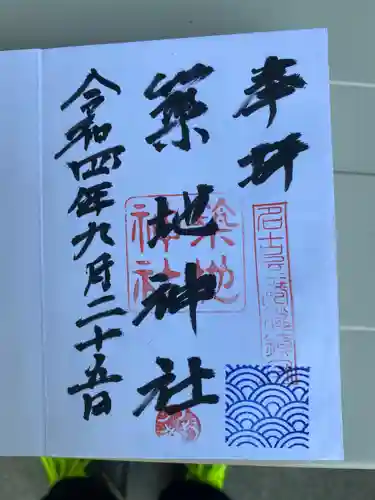 奉拝
築地神社
令和四年九月二十五日
築地
神社